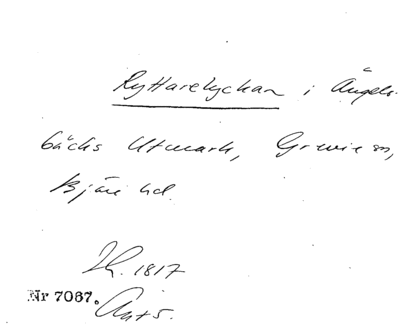 Ryttarelyckan i Ängels-
bäcks Utmark, Grevie sn,
Bjäre hd.
1817
Nr 7067.